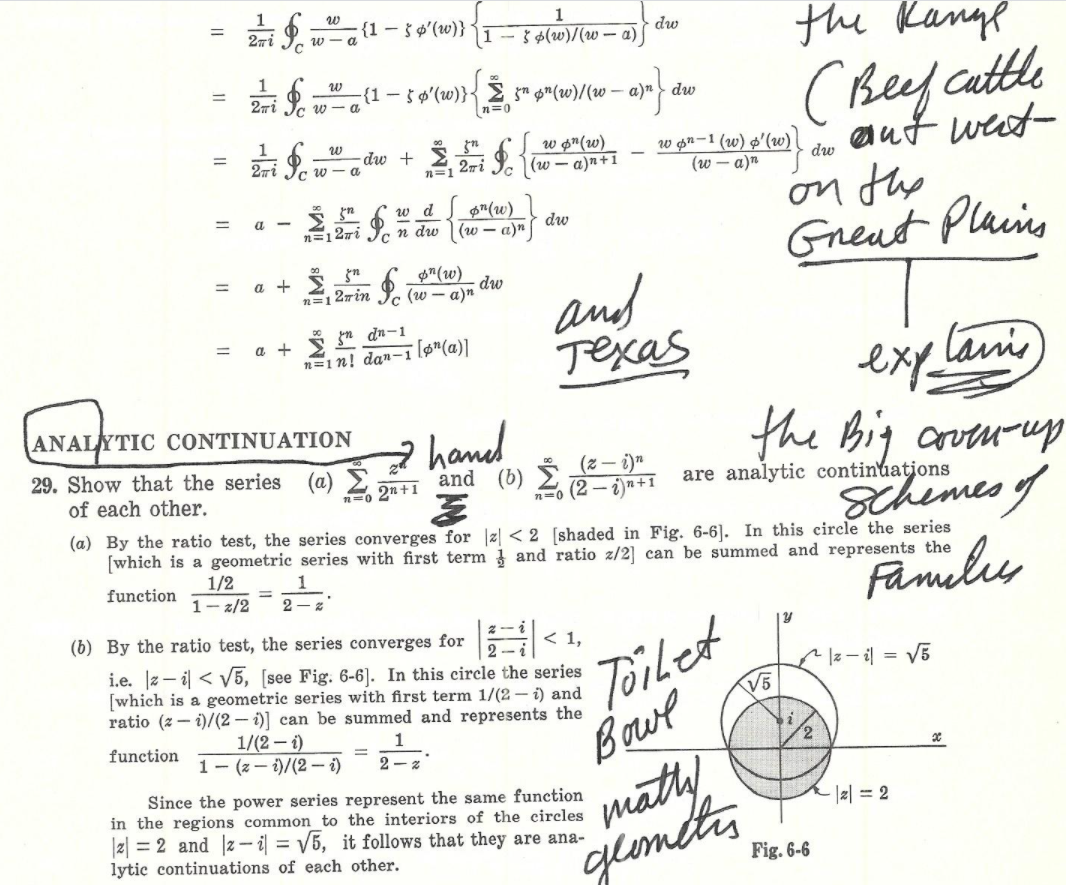 = 1/2πi ∮_C w/(w − a) {1 − ζ φ′(w)} { 1/(1 − ζ φ(w)/(w − a)) } dw
the Range
= 1/2πi ∮_C w/(w − a) {1 − ζ φ′(w)} { ∞Σn=0 ζⁿ φⁿ(w)/(w − a)ⁿ } dw
(Beef cattle
out west-
= 1/2πi ∮_C w/(w − a) dw + ∞Σn=1 ζⁿ/2πi ∮_C { w φⁿ(w)/(w − a)ⁿ⁺¹ − w φⁿ⁻¹(w) φ′(w)/(w − a)ⁿ } dw
on the
Great Plains
= a − ∞Σn=1 ζⁿ/2πi ∮_C w/n d/dw { φⁿ(w)/(w − a)ⁿ } dw
= a + ∞Σn=1 ζⁿ/2πin ∮_C φⁿ(w)/(w − a)ⁿ dw
and
Texas
explains
= a + ∞Σn=1 ζⁿ/n! dⁿ⁻¹/daⁿ⁻¹ [φⁿ(a)]
the Big cover-up
Schemes of
Families
ANALYTIC CONTINUATION
hand
29. Show that the series (a) ∞Σn=0 zⁿ/2ⁿ⁺¹ and (b) ∞Σn=0 (z − i)ⁿ/(2 − i)ⁿ⁺¹ are analytic continuations
of each other.
(a) By the ratio test, the series converges for |z| < 2 [shaded in Fig. 6-6]. In this circle the series
[which is a geometric series with first term ½ and ratio z/2] can be summed and represents the
function (1/2)/(1 − z/2) = 1/(2 − z).
(b) By the ratio test, the series converges for |(z − i)/(2 − i)| < 1,
i.e. |z − i| < √5, [see Fig. 6-6]. In this circle the series
[which is a geometric series with first term 1/(2 − i) and
ratio (z − i)/(2 − i)] can be summed and represents the
function (1/(2 − i))/(1 − (z − i)/(2 − i)) = 1/(2 − z).
Since the power series represent the same function
in the regions common to the interiors of the circles
|z| = 2 and |z − i| = √5, it follows that they are ana-
lytic continuations of each other.
Toilet
Bowl
math/
geometris
y
|z − i| = √5
√5
i
2
x
|z| = 2
Fig. 6-6